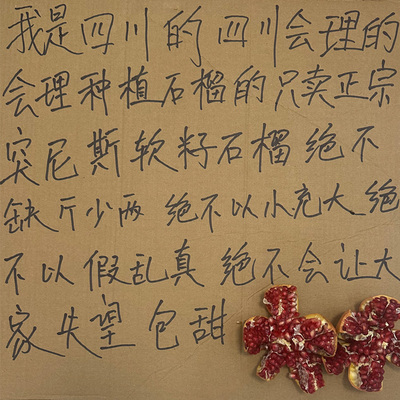 我是四川的 四川会理的
会理种植石榴的只卖正宗
突尼斯软籽石榴 绝不
缺斤少两 绝不以小充大 绝
不以假乱真 绝不会让大
家失望 包甜